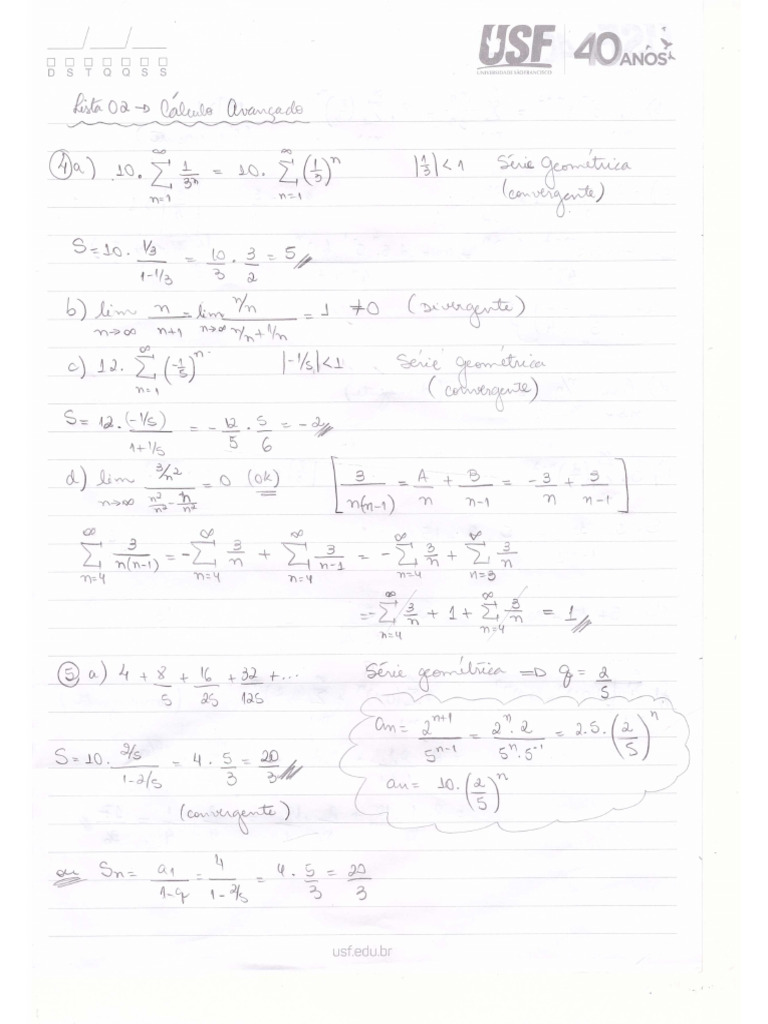 D S T Q Q S S
USF 40 ANOS
UNIVERSIDADE SÃO FRANCISCO
Lista 02 → Cálculo Avançado
4 a) 10. ∑_{n=1}^{∞} 1/3ⁿ = 10. ∑_{n=1}^{∞} (1/3)ⁿ |1/3| < 1 Série Geométrica (convergente)
S = 10. (1/3)/(1-1/3) = 10/3 . 3/2 = 5
b) lim_{n→∞} n/(n+1) = lim_{n→∞} (n/n)/(n/n + 1/n) = 1 ≠ 0 (Divergente)
c) 12. ∑_{n=1}^{∞} (-1/5)ⁿ |-1/5| < 1 Série geométrica (convergente)
S = 12. (-1/5)/(1+1/5) = -12/5 . 5/6 = -2
d) lim_{n→∞} (3/n²)/(n²/n² - n/n²) = 0 (ok) [3/(n(n-1)) = A/n + B/(n-1) = -3/n + 3/(n-1)]
∑_{n=4}^{∞} 3/(n(n-1)) = -∑_{n=4}^{∞} 3/n + ∑_{n=4}^{∞} 3/(n-1) = -∑_{n=4}^{∞} 3/n + ∑_{n=3}^{∞} 3/n
= -∑_{n=4}^{∞} 3/n + 1 + ∑_{n=4}^{∞} 3/n = 1
5 a) 4 + 8/5 + 16/25 + 32/125 + ... Série geométrica ⇒ q = 2/5
an = 2^{n+1}/5^{n-1} = 2ⁿ.2/(5ⁿ.5⁻¹) = 2.5.(2/5)ⁿ
S = 10. (2/5)/(1-2/5) = 4 . 5/3 = 20/3
an = 10.(2/5)ⁿ
(convergente)
ou Sn = a1/(1-q) = 4/(1-2/5) = 4 . 5/3 = 20/3
usf.edu.br